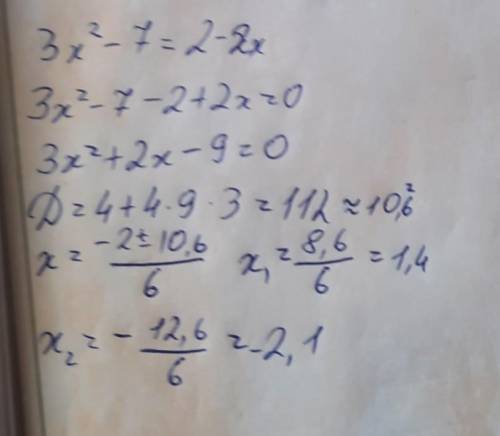 3x² - 7 = 2 - 2x
3x² - 7 - 2 + 2x = 0
3x² + 2x - 9 = 0
D = 4 + 4 · 9 · 3 = 112 ≈ 10,6²
x = (-2 ± 10,6)/6 x₁ = 8,6/6 = 1,4
x₂ = - 12,6/6 = -2,1